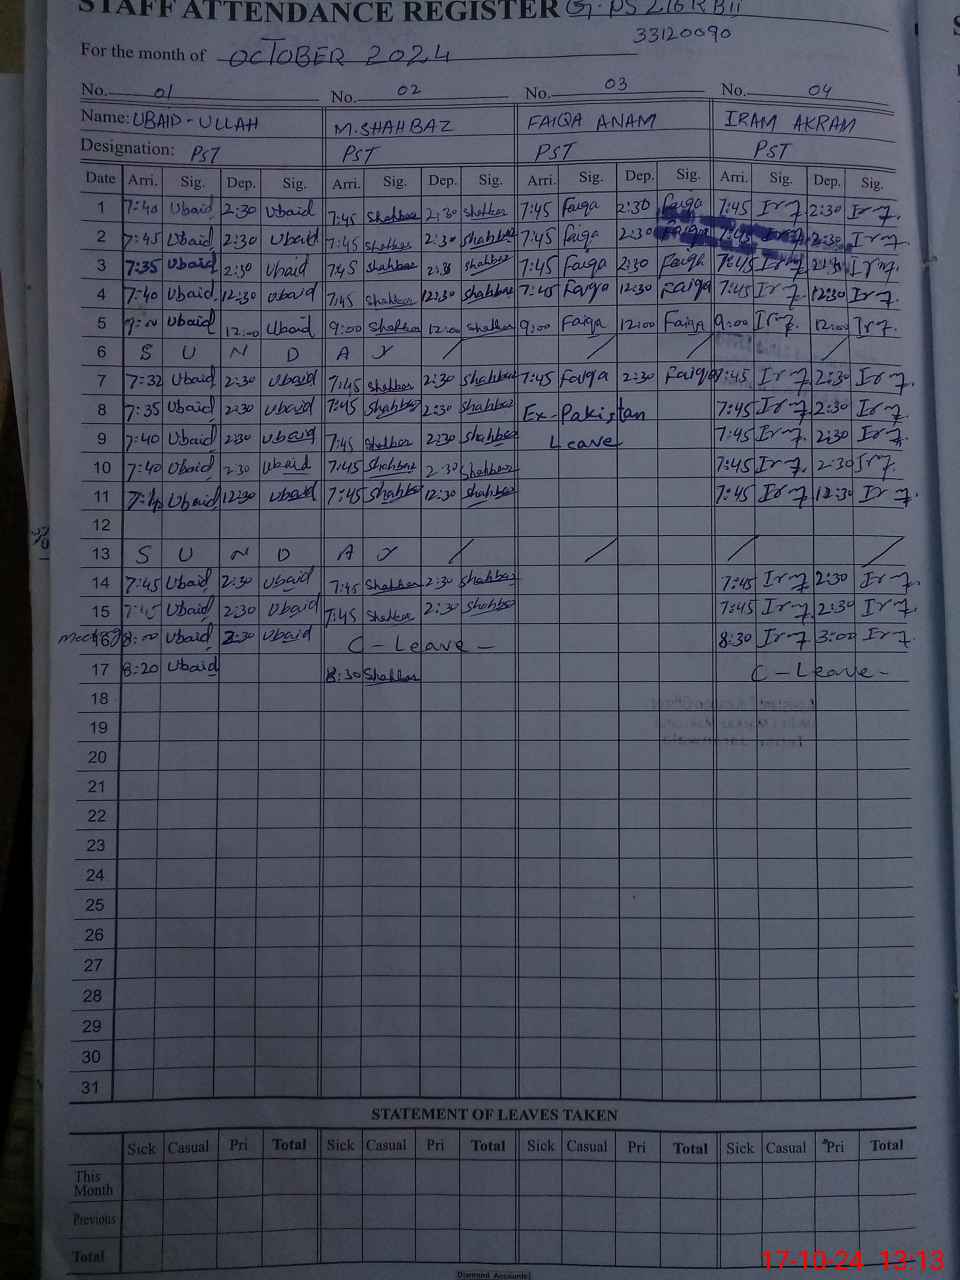 STAFF ATTENDANCE REGISTER G.PS 216 RB II
33120090
For the month of OCTOBER 2024
No. 01 No. 02 No. 03 No. 04
Name: UBAID-ULLAH M.SHAHBAZ FAIQA ANAM IRAM AKRAM
Designation: PST PST PST PST
Date Arri. Sig. Dep. Sig. Arri. Sig. Dep. Sig. Arri. Sig. Dep. Sig. Arri. Sig. Dep. Sig.
1 7:40 Ubaid 2:30 Ubaid 7:45 Shahbaz 2:30 Shahbaz 7:45 Faiqa 2:30 Faiqa 7:45 2:30
2 7:45 Ubaid 2:30 Ubaid 7:45 Shahbaz 2:30 Shahbaz 7:45 Faiqa 2:30 Faiqa 7:45 2:30
3 7:35 Ubaid 2:30 Ubaid 7:45 Shahbaz 2:30 Shahbaz 7:45 Faiqa 2:30 Faiqa 7:45 2:30
4 7:40 Ubaid 12:30 Ubaid 7:45 Shahbaz 12:30 Shahbaz 7:45 Faiqa 12:30 Faiqa 7:45 12:30
5 9:00 Ubaid 12:00 Ubaid 9:00 Shahbaz 12:00 Shahbaz 9:00 Faiqa 12:00 Faiqa 9:00 12:00
6 S U N D A Y
7 7:32 Ubaid 2:30 Ubaid 7:45 Shahbaz 2:30 Shahbaz 7:45 Faiqa 2:30 Faiqa 7:45 2:30
8 7:35 Ubaid 2:30 Ubaid 7:45 Shahbaz 2:30 Shahbaz Ex-Pakistan 7:45 2:30
9 7:40 Ubaid 2:30 Ubaid 7:45 Shahbaz 2:30 Shahbaz Leave 7:45 2:30
10 7:40 Ubaid 2:30 Ubaid 7:45 Shahbaz 2:30 Shahbaz 7:45 2:30
11 Ubaid 12:30 Ubaid 7:45 Shahbaz 12:30 Shahbaz 7:45 12:30
12
13 S U N D A Y
14 7:45 Ubaid 2:30 Ubaid 7:45 Shahbaz 2:30 Shahbaz 7:45 2:30
15 7:45 Ubaid 2:30 Ubaid 7:45 Shahbaz 2:30 Shahbaz 7:45 2:30
Meeting 16 8:00 Ubaid 2:30 Ubaid C-Leave- 8:30 3:00
17 8:20 Ubaid 8:30 Shahbaz C-Leave-
18
19
20
21
22
23
24
25
26
27
28
29
30
31
STATEMENT OF LEAVES TAKEN
Sick Casual Pri Total Sick Casual Pri Total Sick Casual Pri Total Sick Casual Pri Total
This
Month
Previous
Total
Diamond Accounts
17-10-24 13:13